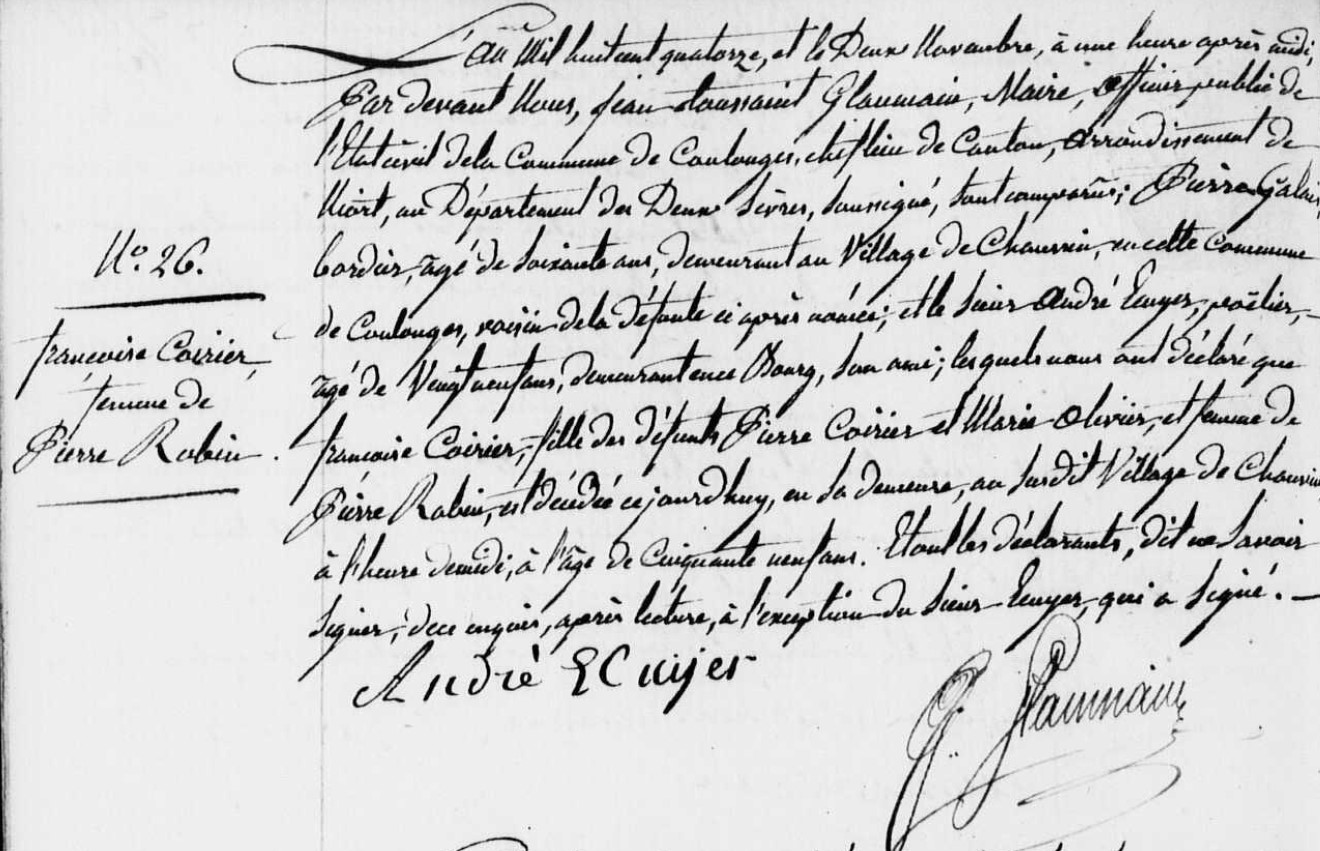 L'an Mil huit cent quatorze, et le Deux Novembre, à une heure après midi,
Par devant Nous, Jean Toussaint Glaumain, Maire, officier public de
l'Etat civil de la Commune de Coulonges, chef lieu de Canton, arrondissement de
Niort, au Département des Deux Sèvres, soussigné, sont comparus; Pierre Galais,
bordier, âgé de soixante ans, demeurant au Village de Chauvin, en cette Commune
de Coulonges, voisin de la défunte ci après nomée; et le sieur André Ecuyer, poëlier,
âgé de Vingt neuf ans, demeurant en ce Bourg, son ami; les quels nous ont déclaré que
françoise Coirier, fille des défunts Pierre Coirier et Marie Olivier, et femme de
Pierre Robin, est décédée ce jourdhuy, en sa demeure, au susdit Village de Chauvin
à l'heure de midi, à l'âge de Cinquante neuf ans. Et ont les déclarants, dit ne Savoir
signer, de ce enquis, après lecture, à l'exception du sieur Ecuyer, qui a signé.
N.° 26.
françoise Coirier,
femme de
Pierre Robin.
André ECuyer
Glaumain